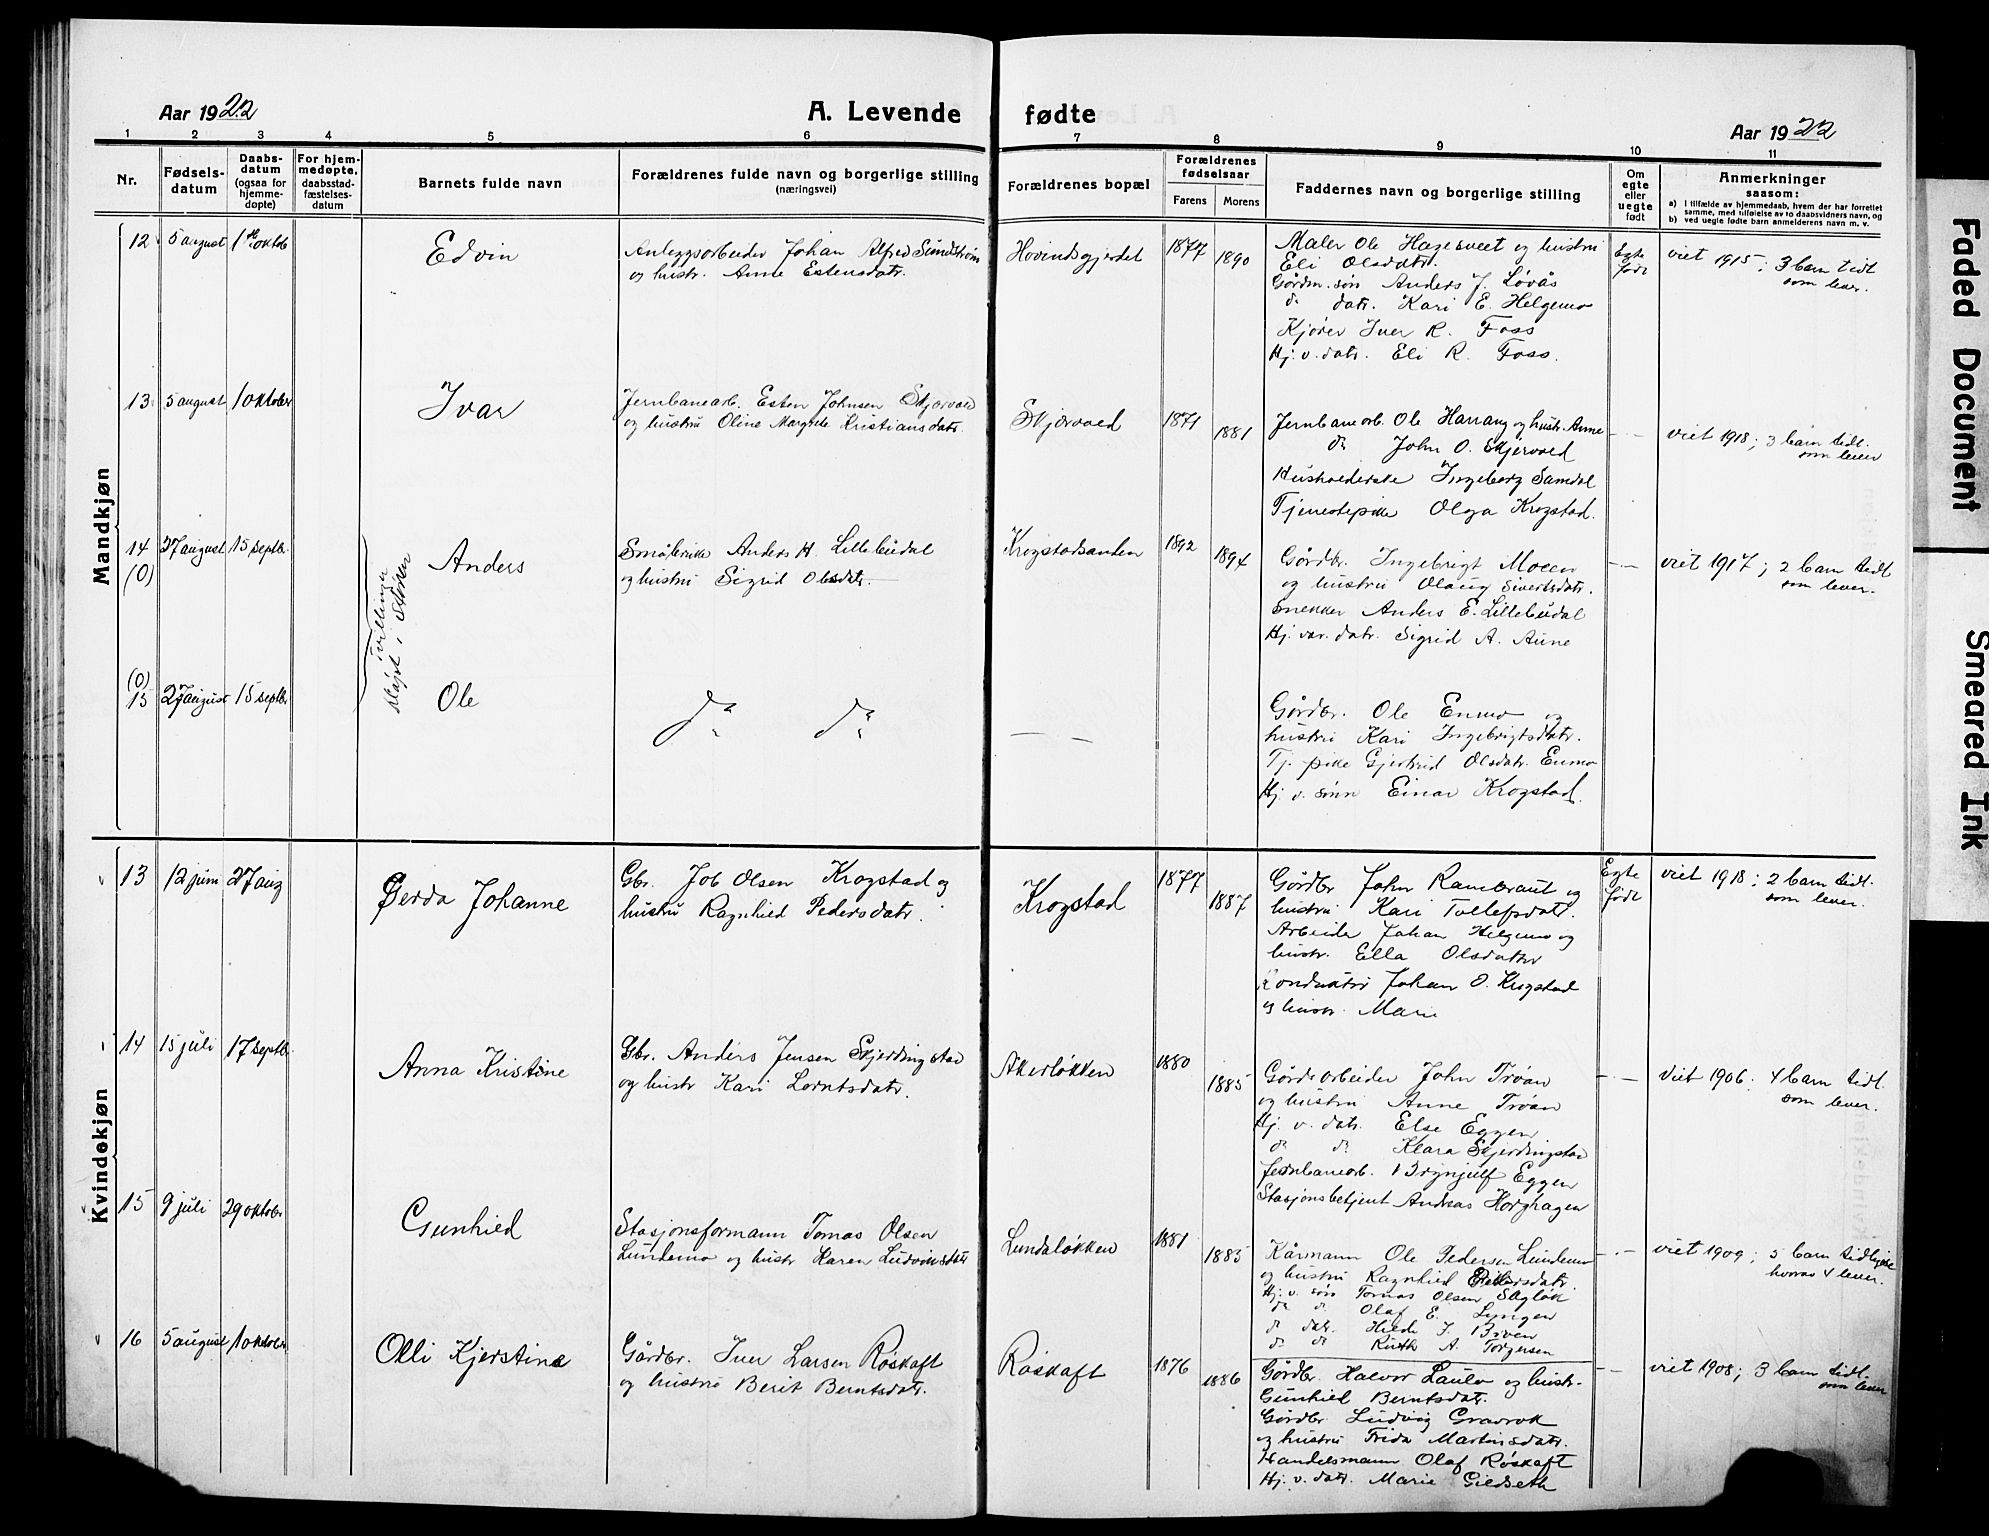 Aar 1922
A. Levende fødte
Aar 1922
1 2 3 4 5 6 7 8 9 10 11
Nr.
Fødsels-
datum
Daabs-
datum
(ogsaa for
hjemme-
døpte)
For hjem-
medøpte,
daabsstad-
fæstelses-
datum
Barnets fulde navn
Forældrenes fulde navn og borgerlige stilling
(næringsvei)
Forældrenes bopæl
Forældrenes
fødselsaar
Farens Morens
Faddernes navn og borgerlige stilling
Om
egte
eller
uegte
født
Anmerkninger
saasom:
a) I tilfælde av hjemmedaab, hvem der har forrettet
samme, med tilføielse av to daabsvidners navn, og
b) ved uegte fødte barn anmelderens navn m. v.
Mandkjøn
12 5 august 1 oktob
Edvin
Anleggsarbeider Johan Alfred Sundstrøm
og hustr. Anne Estensdatr.
Hovindsgjerdet
1877 1890
Maler Ole Hagesveet og hustru
Eli Olsdatr.
Gårdm. søn Anders J. Løvås
do datr. Kari E. Helgemo
Kjører Iver R. Foss
Hj. v. datr. Eli R. Foss.
Egte
født
viet 1915; 3 barn tidl
som lever.
13 5 august 1 oktober
Ivar
Jernbanearb. Esten Johnsen Skjærvold
og hustru Oline Margrete Kristiansdatr.
Skjærvold
1871 1881
Jernbanearb. Ole Harrang og hustr. Anne
do John O. Skjervold
Husholderske Ingeborg Samdal
Tjenestepike Olga Krogstad.
- · -
viet 1918; 3 barn tidl.
som lever
14 27 august 15 septb.
(0)
Tvillinger
Anders
Småbruker Anders H. Lillebudal
og hustru Sigrid Olsdatr.
Krogstadsanden
1892 1894
Gårdbr. Ingebrigt Moen
og hustru Olaug Sivertsdatr.
Snekker Anders E. Lillebudal
Hj. var. datr. Sigrid A. Aune
- · -
viet 1917; 2 barn tidl
som lever.
(0)
15 27 august 15 septbr
Ole
do do
— —
Gårdbr. Ole Enmo og
hustru Kari Ingebrigtsdatr.
Tj. pike Gjertrud Olsdatr. Enmo
Hj. v. sønn Einar Krogstad.
Kvindekjøn
13 12 juni 27 aug
Gerda Johanne
Gbr. Job Olsen Krogstad og
hustru Ragnhild Pedersdatr.
Krogstad
1877 1887
Gårdbr John Rambraut og
hustru Kari Tollefsdatr.
Arbeider Johan Helgemo og
hustr. Ella Olsdatter
Konduktør Johan O. Krogstad
og hustr. Marie
Egte
født
viet 1918; 2 barn tidl.
som lever.
14 15 juli 17 septbr.
Anna Kristine
Gbr. Anders Jensen Skjerdingstad
og hustr Kari Lorntsdatr.
Akerløkken
1880 1885
Gårdsarbeider John Trøan
og hustru Anne Trøan
Hj. v. datr. Else Eggen
do do Klara Skjerdingstad
Jernbanearb. Brynjulf Eggen
Stasjonsbetjent Andreas Horghagen
- · -
Viet 1906. 4 barn tidl.
som lever.
15 9 juli 29 oktobr
Gunhild
Stasjonsformann Tomas Olsen
Lundemo og hustr Karen Ludviksdatr
Lundaløkken
1881 1885
Kårmann Ole Pedersen Lundemo
og hustru Ragnhild Pedersdatr.
Hj. v. søn Tomas Olsen Sagløk
do do Olaf E. Lyngen
do datr. Hilde J. Boven
do do Ruth A. Torgersen
- · -
viet 1909; 5 barn tidligere
hvorav 4 lever.
16 5 august 1 oktober
Olli Kjerstine
Gårdbr. Iver Larsen Røskaft
og hustru Berit Berntsdatr.
Røskaft
1876 1886
Gårdbr. Halvor Laulo og hustr.
Gunhild Berntsdatr.
Gårdbr Ludvig Gravrok
og hustru Frida Martinsdatr.
Handelsmann Olaf Røskaft
Hj. v. datr. Marie Gildseth
- -
viet 1908; 3 barn tidl.
som lever
Faded Document
Smeared Ink